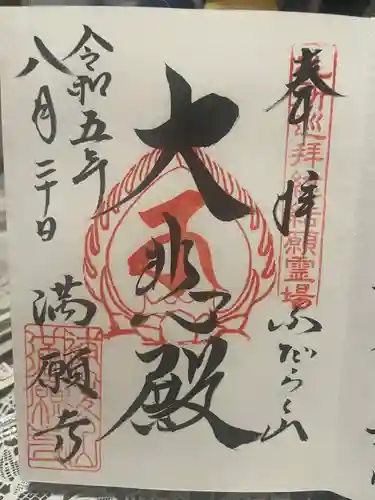 奉拝
巡拝総結願霊場
ふだらく山
大悲殿
令和五年
八月二十日
満願寺